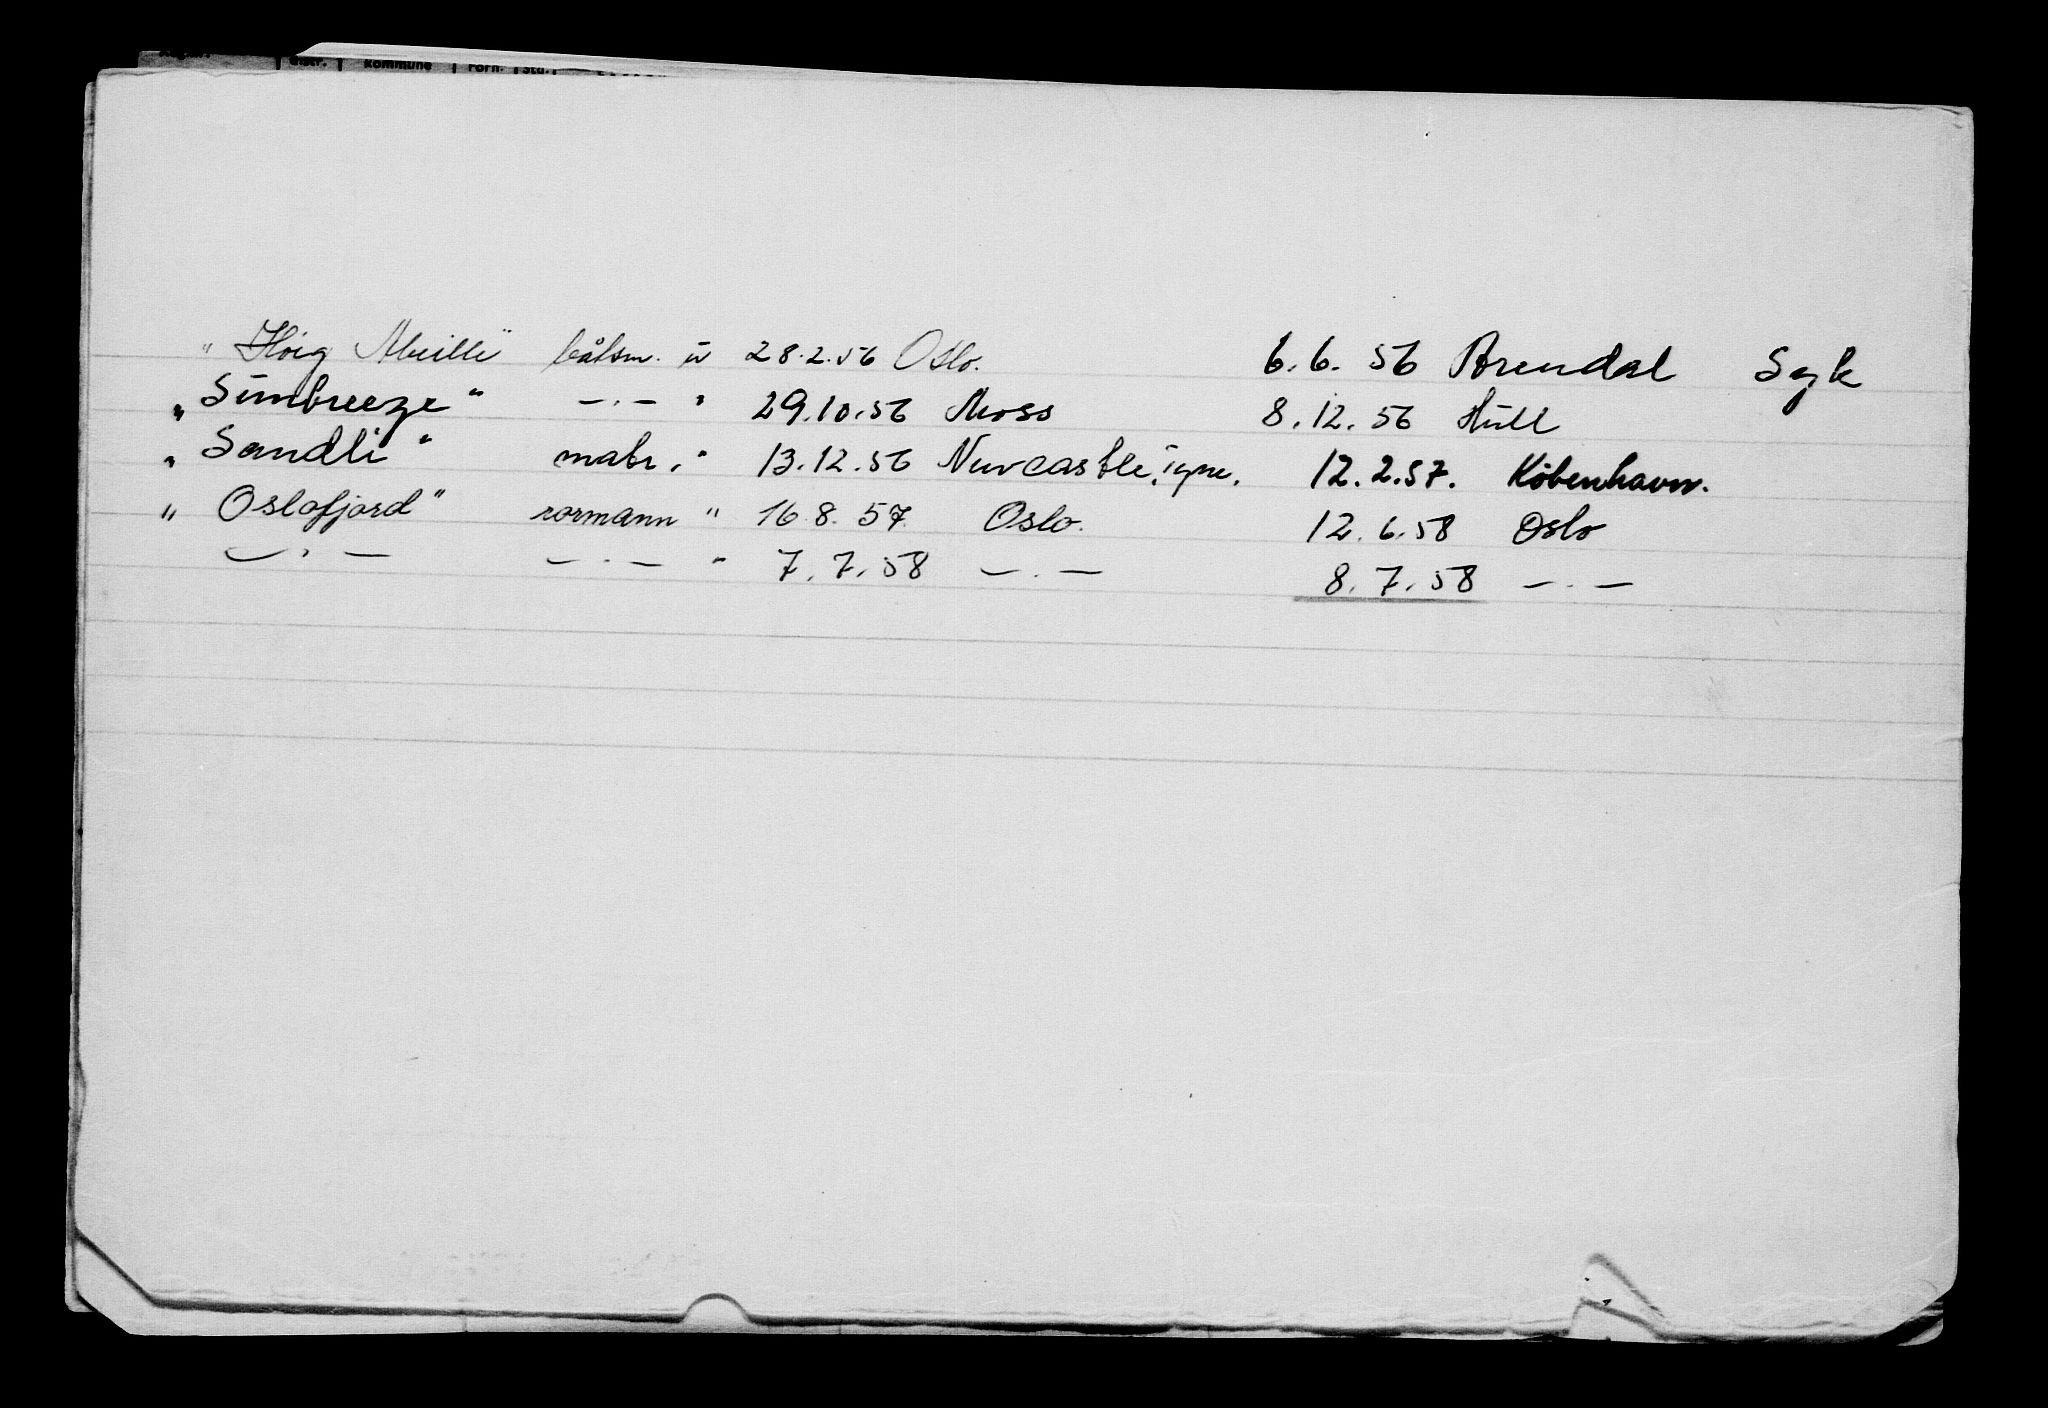 distr. kommune Forh. Std.
" Höig Abeille" båtsm. " 28.2.56 Oslo. 6.6.56 Arendal Syk
" Sunbreeze " — . — " 29.10.56 Moss 8.12.56 Hull
" Sandli " matr. " 13.12.56 Newcastle, Tyne. 12.2.57. København.
" Oslofjord " rormann " 16.8.57 Oslo. 12.6.58 Oslo
— " — — . — " 7.7.58 — . — 8.7.58 — . —